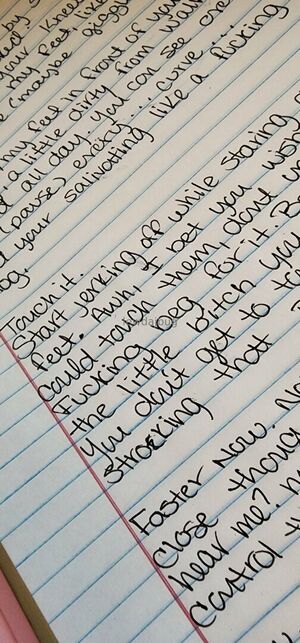 your knee
my feet, like
(maybe giggle
my feet in front of you
a little dirty from walk
all day. you can see
(pause) every... curve...
your salivating like a fucking
og.
Touch it.
Start jerking off while staring
feet. Aww, I bet you wish
could touch them, don't
Fucking beg for it. B
the little bitch you
You don't get to to
stroking that
Faster Now. N
Close though
hear me?
Control